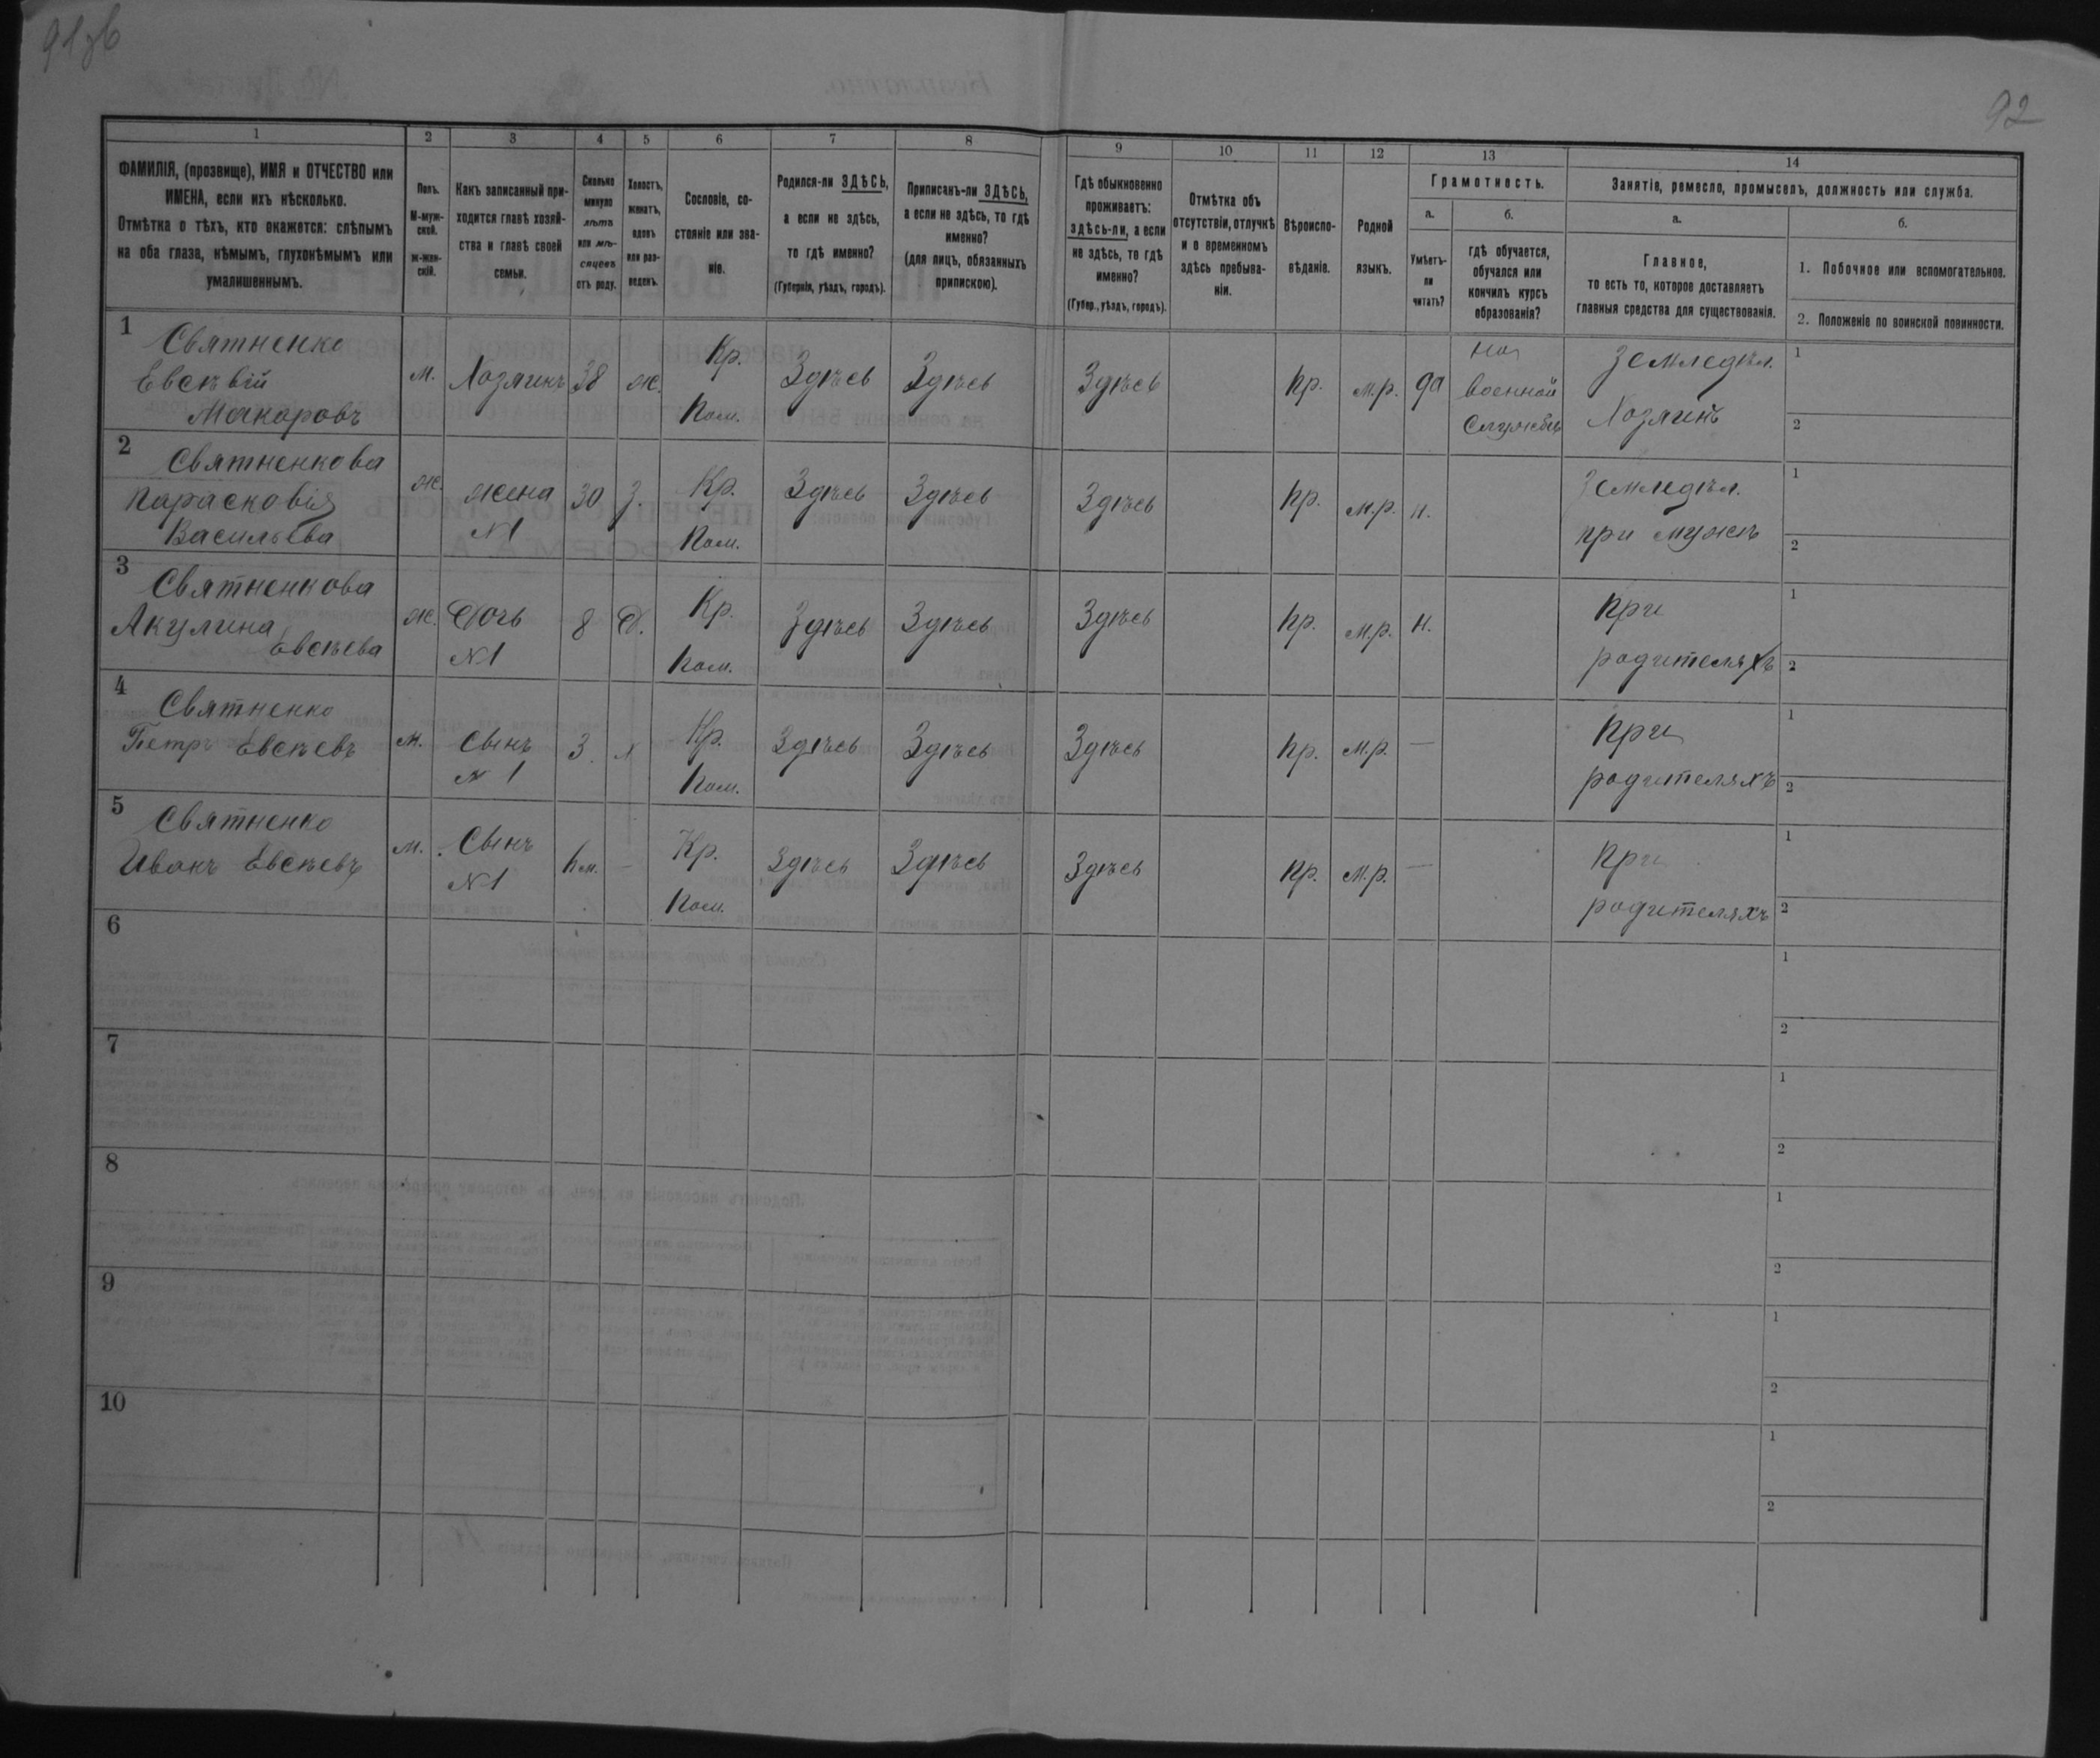 91зв
92
1
2
3
4
5
6
7
8
9
10
11
12
13
14
ФАМИЛІЯ, (прозвище), ИМЯ и ОТЧЕСТВО или
ИМЕНА, если ихъ нѣсколько.
Отмѣтка о тѣхъ, кто окажется: слѣпымъ
на оба глаза, нѣмымъ, глухонѣмымъ или
умалишеннымъ.
Полъ.
М-муж-
ской.
ж-жен-
скій.
Какъ записанный при-
ходится главѣ хозяй-
ства и главѣ своей
семьи.
Сколько
минуло
лѣтъ
или мѣ-
сяцевъ
отъ роду.
Холостъ,
женатъ,
вдовъ
или раз-
веденъ.
Сословіе, со-
стояніе или зва-
ніе.
Родился-ли ЗДѢСЬ,
а если не здѣсь,
то гдѣ именно?
(Губернія, уѣздъ, городъ).
Приписанъ-ли ЗДѢСЬ,
а если не здѣсь, то гдѣ
именно?
(для лицъ, обязанныхъ
припискою).
Гдѣ обыкновенно
проживаетъ:
здѣсь-ли, а если
не здѣсь, то гдѣ
именно?
(Губер., уѣздъ, городъ).
Отмѣтка объ
отсутствіи, отлучкѣ
и о временномъ
здѣсь пребыва-
ніи.
Вѣроиспо-
вѣданіе.
Родной
языкъ.
Грамотность.
а.
б.
Умѣетъ-
ли
читать?
гдѣ обучается,
обучался или
кончилъ курсъ
образованія?
Занятіе, ремесло, промыселъ, должность или служба.
а.
б.
Главное,
то есть то, которое доставляетъ
главныя средства для существованія.
1. Побочное или вспомогательное.
2. Положеніе по воинской повинности.
1
Святненко
Евсѣвій
Макаровъ
м.
Хозяинъ
38
ж.
Кр.
Ком.
Здѣсь
Здѣсь
Здѣсь
Пр.
м.р.
да
на
военной
службѣ
Земледѣл.
Хозяинъ
1
2
2
Святненкова
Парасковія
Васильева
ж.
жена
№1
30
З.
Кр.
Ком.
Здѣсь
Здѣсь
Здѣсь
Пр.
м.р.
н.
Земледѣл.
при мужѣ
1
2
3
Святненкова
Акулина
Евсѣева
ж.
Дочь
№1
8
Д.
Кр.
Ком.
Здѣсь
Здѣсь
Здѣсь
Пр.
м.р.
н.
При
родителяхъ
1
2
4
Святненко
Петръ Евсѣевъ
м.
Сынъ
№1
3
х
Кр.
Ком.
Здѣсь
Здѣсь
Здѣсь
Пр.
м.р.
—
При
родителяхъ
1
2
5
Святненко
Иванъ Евсѣевъ
м.
Сынъ
№1
6 м.
—
Кр.
Ком.
Здѣсь
Здѣсь
Здѣсь
Пр.
м.р.
—
При
родителяхъ
1
2
6
1
2
7
1
2
8
1
2
9
1
2
10
1
2